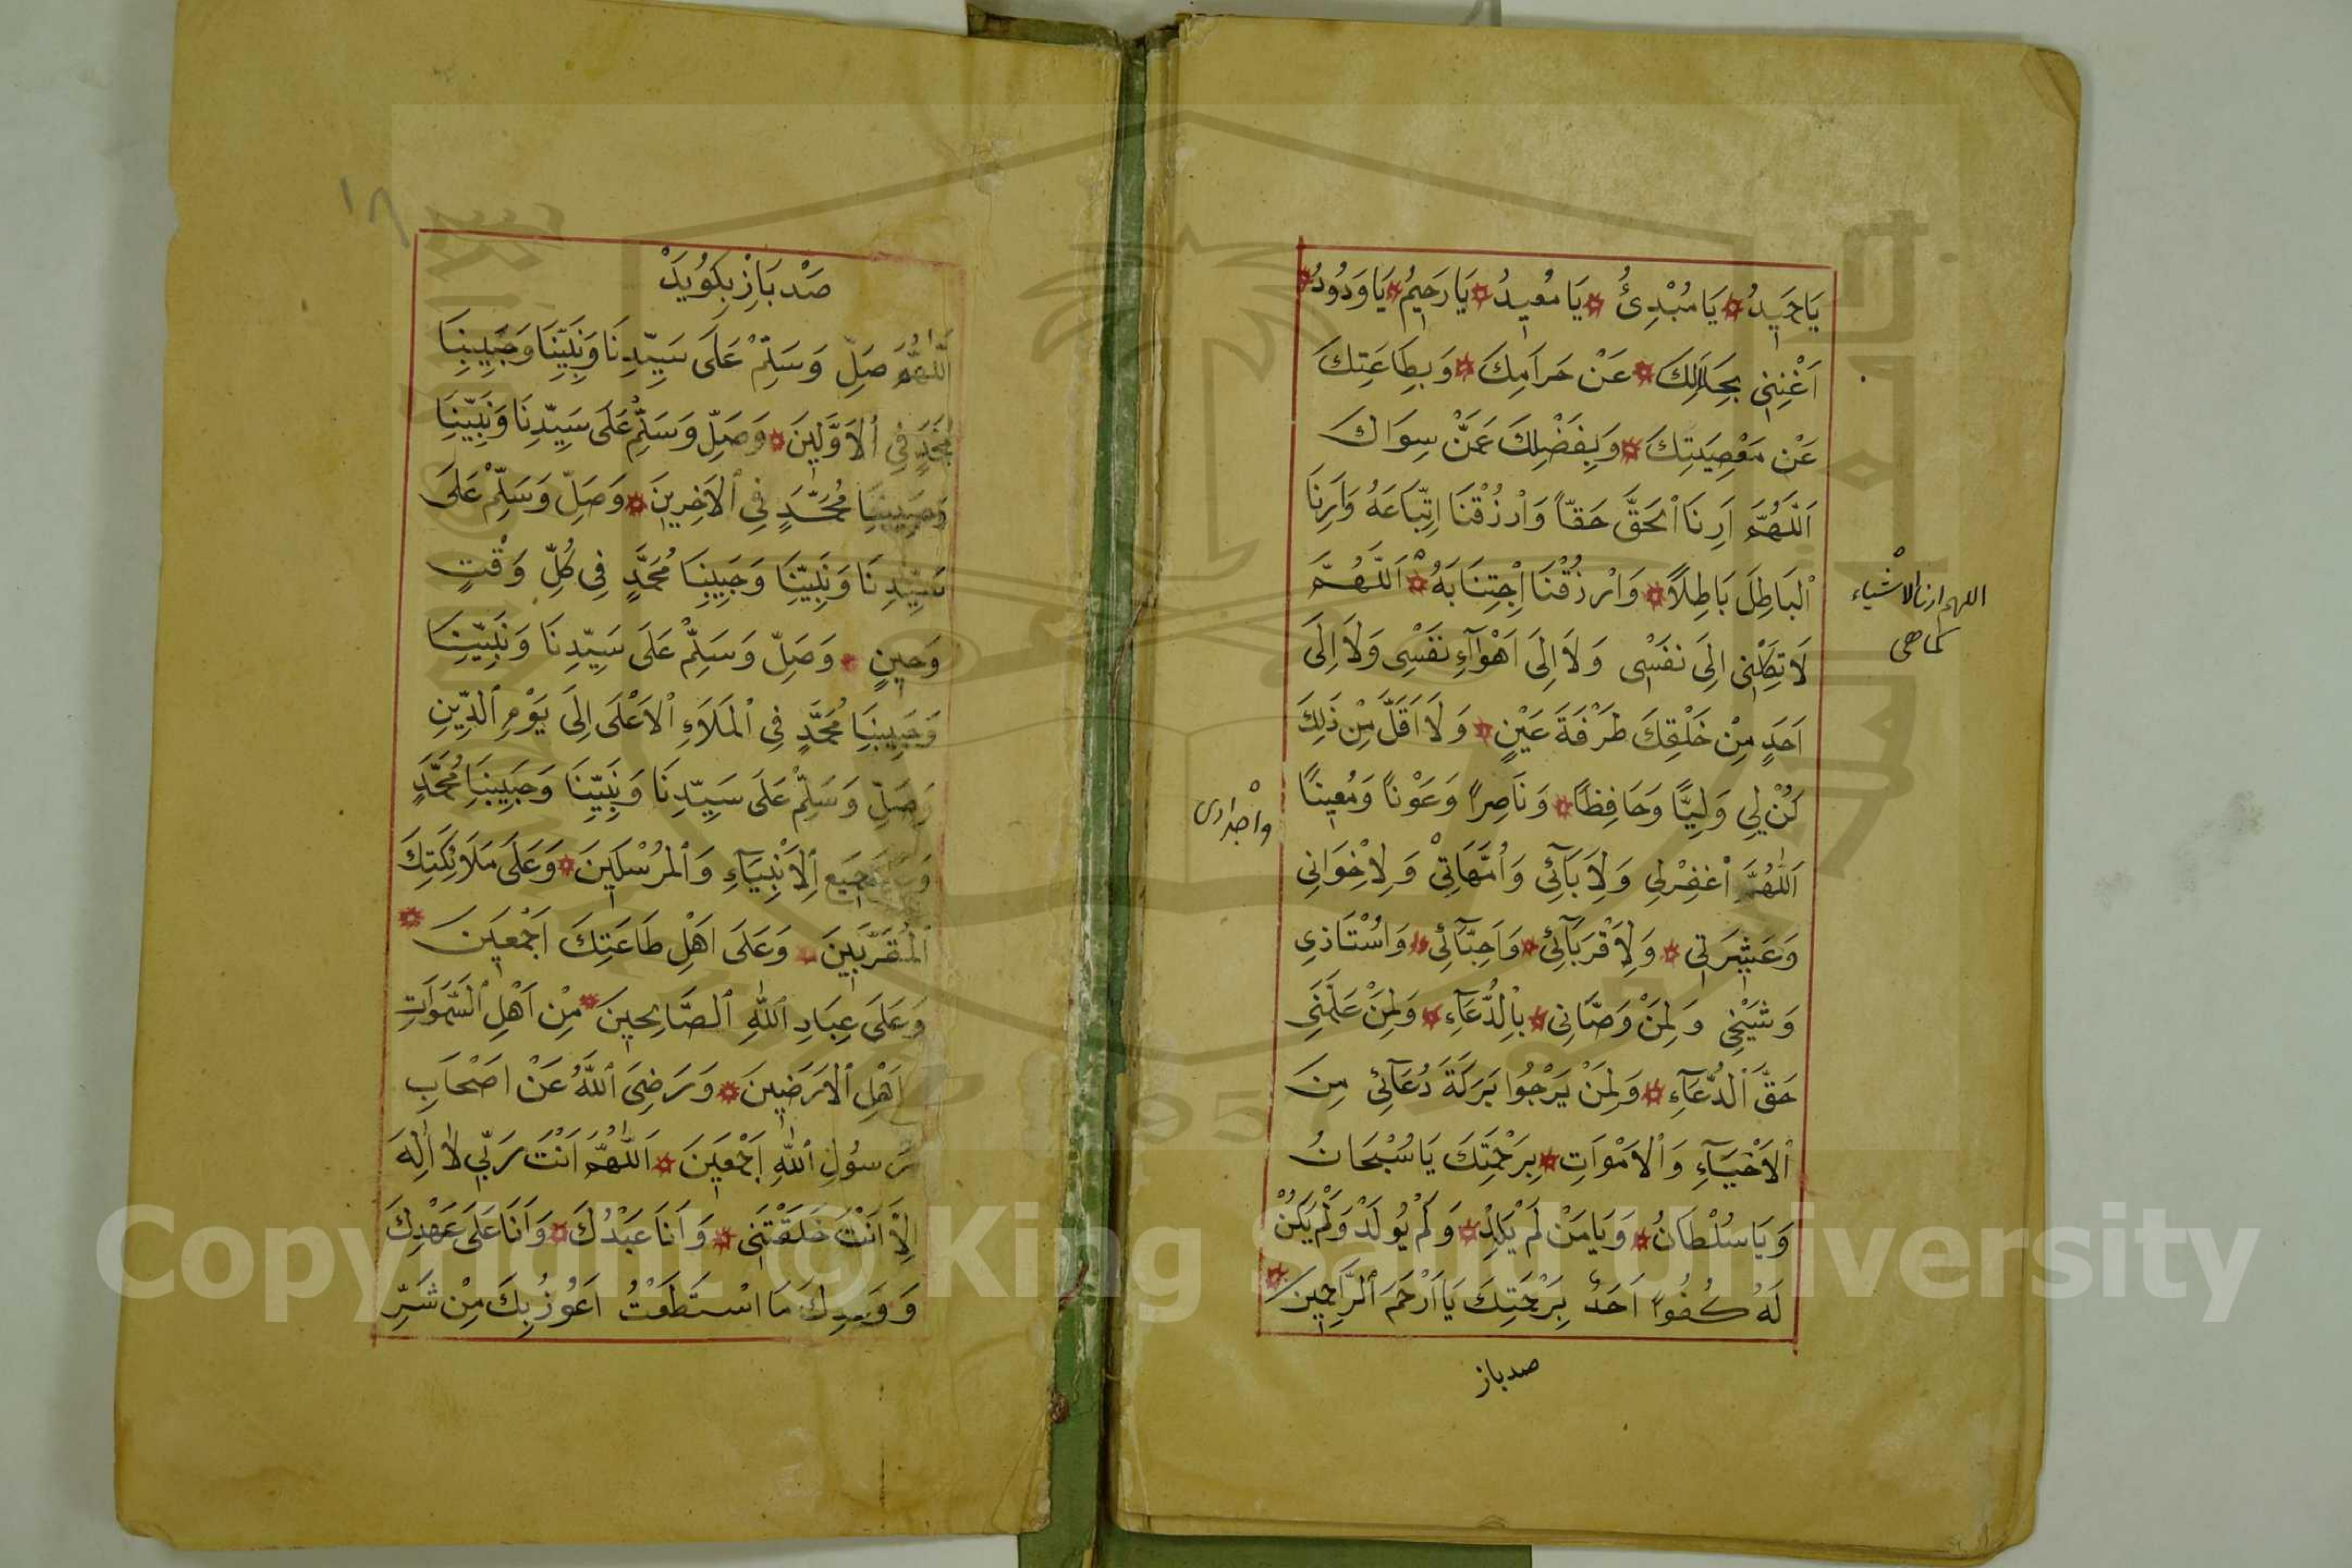 يَا حَمِيدُ يَا مُبْدِئُ يَا مُعِيدُ يَا رَحِيمُ يَا وَدُودُ
اَغْنِنِي بِحَلَالِكَ عَنْ حَرَامِكَ وَبِطَاعَتِكَ
عَنْ مَعْصِيَتِكَ وَبِفَضْلِكَ عَمَّنْ سِوَاكَ
اَللّٰهُمَّ اَرِنَا الْحَقَّ حَقّاً وَارْزُقْنَا اِتِّبَاعَهُ وَاَرِنَا
الْبَاطِلَ بَاطِلاً وَارْزُقْنَا اِجْتِنَابَهُ اَللّٰهُمَّ
لَا تَكِلْنِي اِلَى نَفْسِى وَلَا اِلَى اَهْوَآءِ نَفْسِى وَلَا اِلَى
اَحَدٍ مِنْ خَلْقِكَ طَرْفَةَ عَيْنٍ وَلَا اَقَلَّ مِنْ ذٰلِكَ
كُنْ لِي وَلِيًّا وَحَافِظاً وَنَاصِراً وَعَوْناً وَمُعِيناً
اَللّٰهُمَّ اغْفِرْلِي وَلِاٰبَآئِي وَاُمَّهَاتِي وَلِاِخْوَانِي
وَعَشِيرَتِي وَلِاَقْرَبَآئِي وَاَحِبَّآئِي وَاُسْتَاذِي
وَشَيْخِي وَلِمَنْ وَصَّانِي بِالدُّعَآءِ وَلِمَنْ عَلَّمَنِي
حَقَّ الدُّعَآءِ وَلِمَنْ يَرْجُوا بَرَكَةَ دُعَآئِي مِنَ
الْاَحْيَآءِ وَالْاَمْوَاتِ بِرَحْمَتِكَ يَا سُبْحَانُ
وَيَا سُلْطَانُ وَيَا مَنْ لَمْ يَلِدْ وَلَمْ يُولَدْ وَلَمْ يَكُنْ
لَهُ كُفُواً اَحَدٌ بِرَحْمَتِكَ يَا اَرْحَمَ الرَّاحِمِينَ
صدباز
اللهم ارنا الاشياء
كما هى
١٨
صَدْ بَازْ بِكُويَدْ
اَللّٰهُمَّ صَلِّ وَسَلِّمْ عَلَى سَيِّدِنَا وَنَبِيِّنَا وَحَبِيبِنَا
مُحَمَّدٍ فِي الْاَوَّلِينَ وَصَلِّ وَسَلِّمْ عَلَى سَيِّدِنَا وَنَبِيِّنَا
وَحَبِيبِنَا مُحَمَّدٍ فِي الْاٰخِرِينَ وَصَلِّ وَسَلِّمْ عَلَى
سَيِّدِنَا وَنَبِيِّنَا وَحَبِيبِنَا مُحَمَّدٍ فِي كُلِّ وَقْتٍ
وَحِينٍ وَصَلِّ وَسَلِّمْ عَلَى سَيِّدِنَا وَنَبِيِّنَا
وَحَبِيبِنَا مُحَمَّدٍ فِي الْمَلَاءِ الْاَعْلَى اِلَى يَوْمِ الدِّينِ
وَصَلِّ وَسَلِّمْ عَلَى سَيِّدِنَا وَنَبِيِّنَا وَحَبِيبِنَا مُحَمَّدٍ
جَمِيعِ الْاَنْبِيَآءِ وَالْمُرْسَلِينَ وَعَلَى مَلَائِكَتِكَ
الْمُقَرَّبِينَ وَعَلَى اَهْلِ طَاعَتِكَ اَجْمَعِينَ
وَعَلَى عِبَادِ اللّٰهِ الصَّالِحِينَ مِنْ اَهْلِ السَّمٰوَاتِ
اَهْلِ الْاَرَضِينَ وَرَضِيَ اللّٰهُ عَنْ اَصْحَابِ
رَسُولِ اللّٰهِ اَجْمَعِينَ اَللّٰهُمَّ اَنْتَ رَبِّي لَا اِلٰهَ
اِلَّا اَنْتَ خَلَقْتَنِي وَاَنَا عَبْدُكَ وَاَنَا عَلَى عَهْدِكَ
وَوَعْدِكَ مَا اسْتَطَعْتُ اَعُوذُ بِكَ مِنْ شَرِّ
Copyright © King Saud University
1957